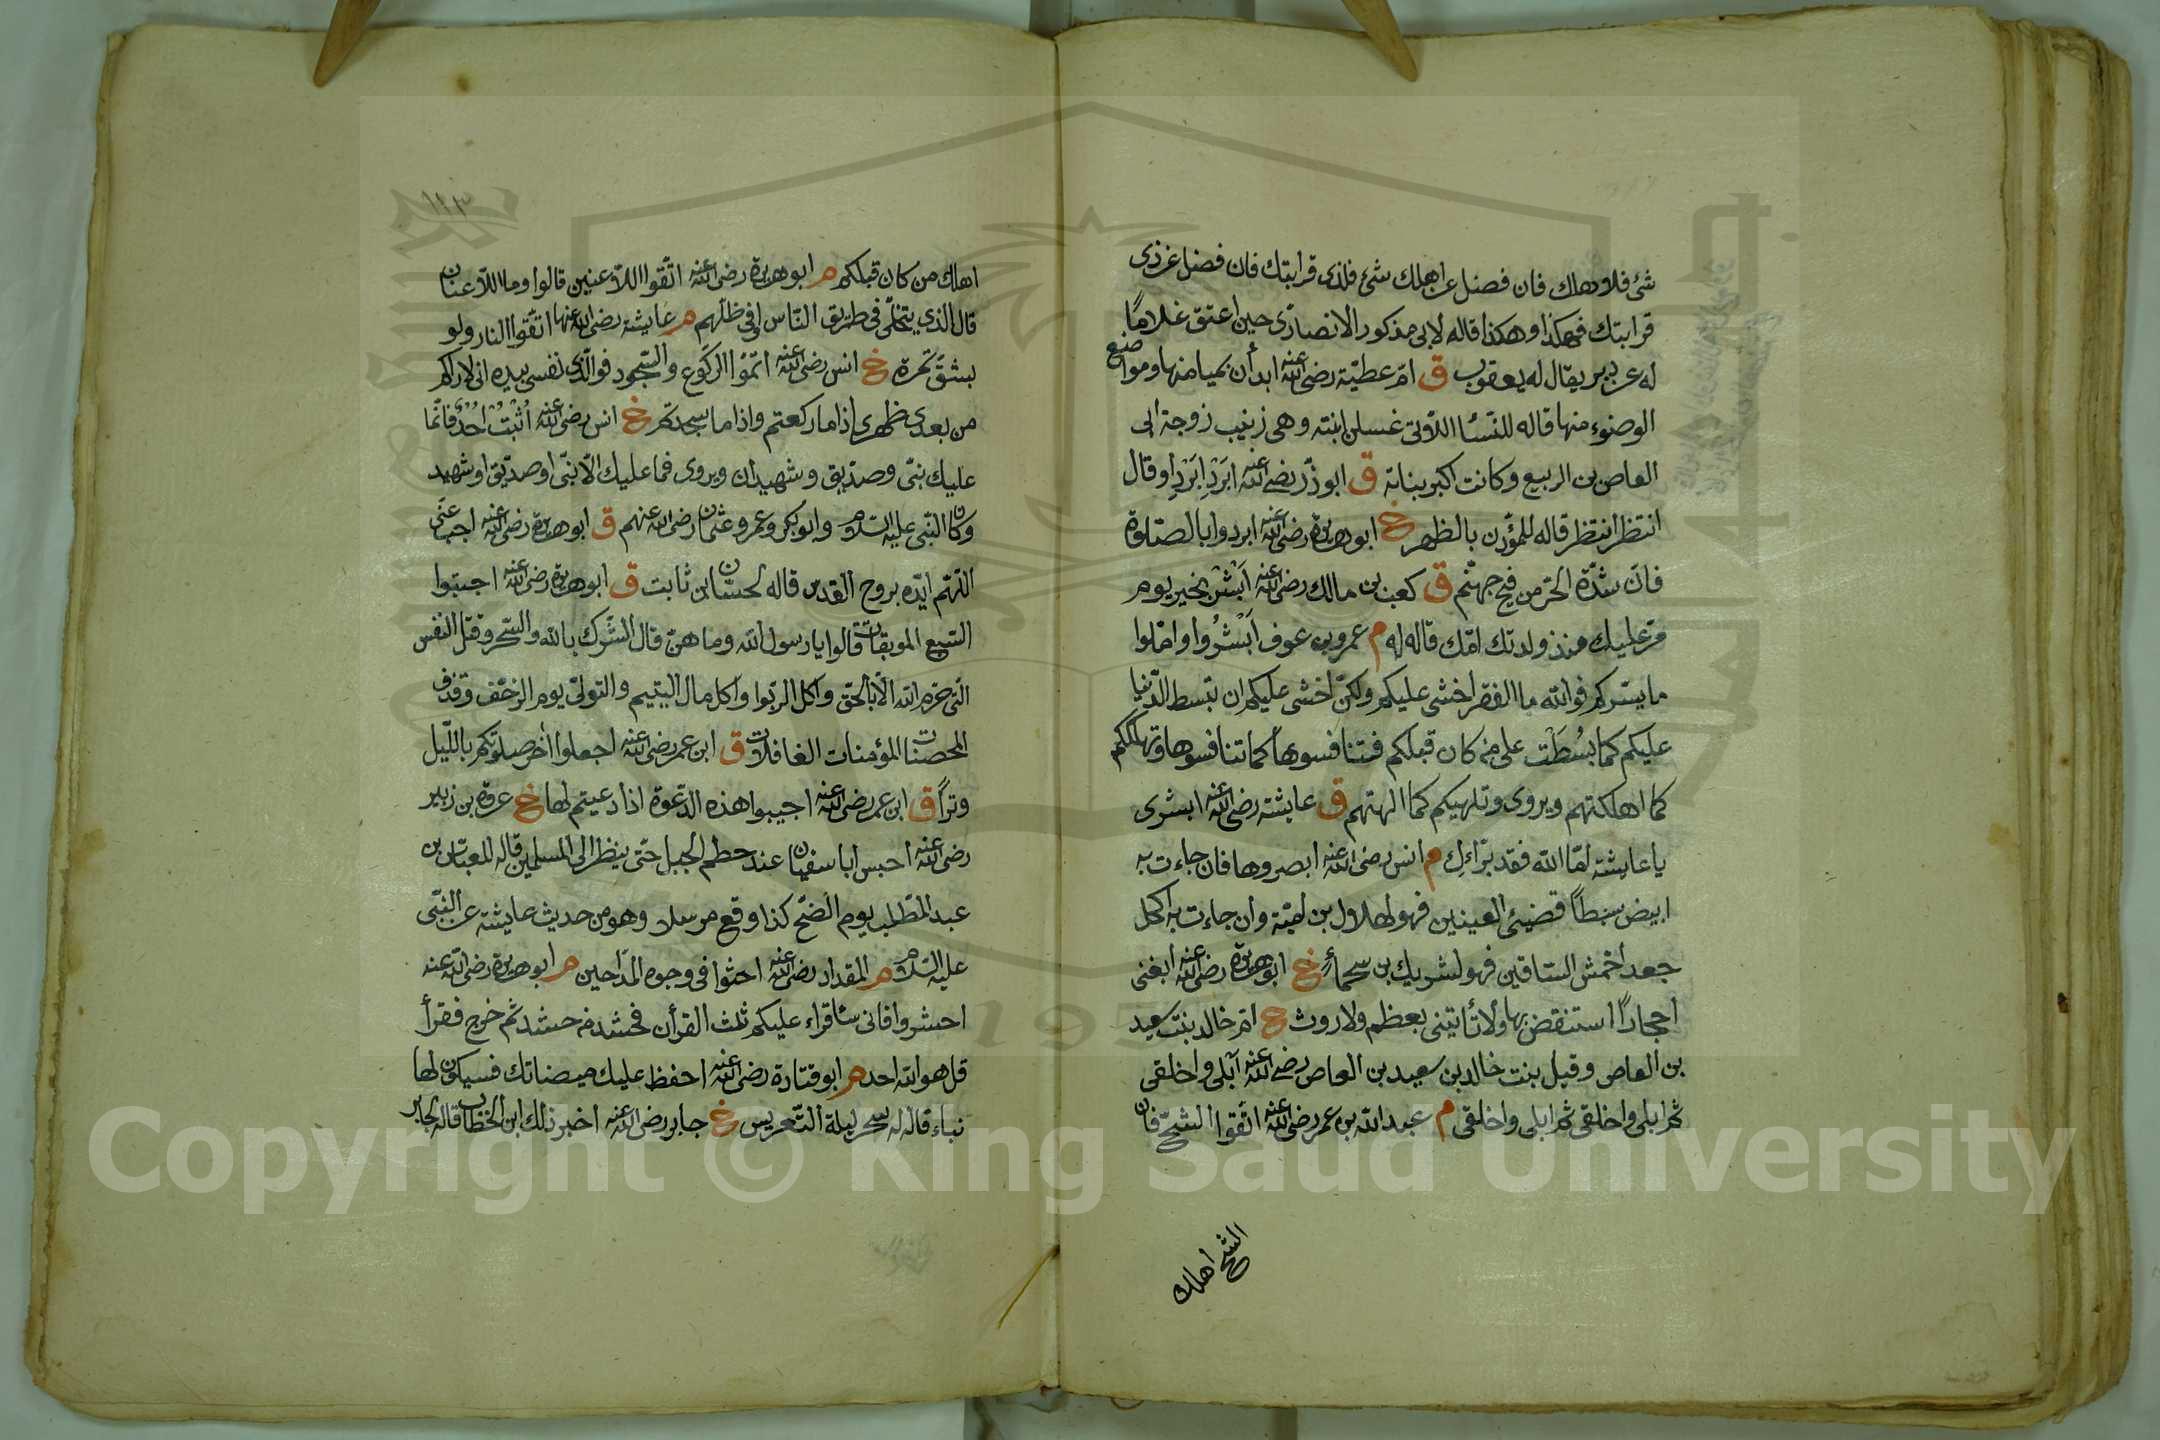 شئ فلاوهلك فان فضل عن اهلك شئ فلذى قرابتك فان فضل عن ذى
قرابتك فهكذا وهكذا قاله لابى مذكور الانصارى حين اعتق غلاما
له عن دبر يقال له يعقوب ق ام عطية رضى الله عنه ابدأن بميامنها ومواضع
الوضوء منها قاله للنساء اللاتى غسلن ابنته وهى زينب زوجة ابى
العاص بن الربيع وكانت اكبر بناته ق ابو ذر رضى الله عنه ابرد ابرد او قال
انتظر انتظر قاله للمؤذن بالظهر خ ابو هريرة رضى الله عنه ابردوا بالصلوة
فان شدة الحر من فيح جهنم ق كعب بن مالك رضى الله عنه ابشر بخير يوم
مر عليك منذ ولدتك امك قاله له م عمرو بن عوف ابشروا واملوا
ما يسركم فوالله ما الفقر اخشى عليكم ولكن اخشى عليكم ان تبسط الدنيا
عليكم كما بسطت على من كان قبلكم فتنافسوها كما تنافسوها وتهلككم
كما اهلكتهم ويروى وتلهيكم كما الهتهم ق عايشة رضى الله عنه ابشرى
يا عايشة اما الله فقد براءك م انس رضى الله عنه ابصروها فان جاءت به
ابيض سبطا قضيئ العينين فهو لهلال بن امية وان جاءت به اكحل
جعد احمش الساقين فهو لشريك بن سحماء خ ابو هريرة رضى الله عنه ابغنى
احجارا استنفض بها ولا تأتينى بعظم ولا روث خ ام خالد بنت سعيد
بن العاص وقيل بنت خالد بن سعيد بن العاص رضى الله عنه ابلى واخلقى
ثم ابلى واخلقى ثم ابلى واخلقى م عبد الله بن عمر رضى الله عنه اتقوا الشح فان
الشح اهلك
١٢٣
اهلك من كان قبلكم م ابو هريرة رضى الله عنه اتقوا اللاعنين قالوا وما اللاعنان
قال الذي يتخلى فى طريق الناس او فى ظلهم م عايشة رضى الله عنها اتقوا النار ولو
بشق تمرة خ انس رضى الله عنه اتموا الركوع والسجود فوالذى نفسى بيده انى لاراكم
من بعدى ظهرى اذا ما ركعتم واذا ما سجدتم خ انس رضى الله عنه اثبت احد فانما
عليك نبى وصديق وشهيدان ويروى فما عليك الا نبى او صديق او شهيد
وكان النبى عليه السلام وابو بكر وعمر وعثمان رضى الله عنهم ق ابو هريرة رضى الله عنه اجب عنى
اللهم ايده بروح القدس قاله لحسان بن ثابت ق ابو هريرة رضى الله عنه اجتنبوا
السبع الموبقات قالوا يا رسول الله وما هن قال الشرك بالله والسحر وقتل النفس
التى حرم الله الا بالحق واكل الربوا واكل مال اليتيم والتولى يوم الزحف وقذف
المحصنات المؤمنات الغافلات ق ابن عمر رضى الله عنه اجعلوا اخر صلوتكم بالليل
وترا ق ابن عمر رضى الله عنه اجيبوا هذه الدعوة اذا دعيتم لها خ عروة بن زبير
رضى الله عنه احبس ابا سفيان عند حطم الجبل حتى ينظر الى المسلمين قاله للعباس بن
عبد المطلب يوم الفتح كذا وقع مرسلا وهو من حديث عايشة عن النبى
عليه السلام م المقداد رضى الله عنه احثوا فى وجوه المداحين م ابو هريرة رضى الله عنه
احشروا فانى ساقراء عليكم ثلث القرأن فحشد من حشد ثم خرج فقرأ
قل هو الله احد م ابو قتادة رضى الله عنه احفظ عليك ميضاتك فسيكون لها
نباء قاله له سحر ليلة التعريس خ جابر رضى الله عنه اخبر ذلك ابن الخطاب قاله لجابر
Copyright © King Saud University